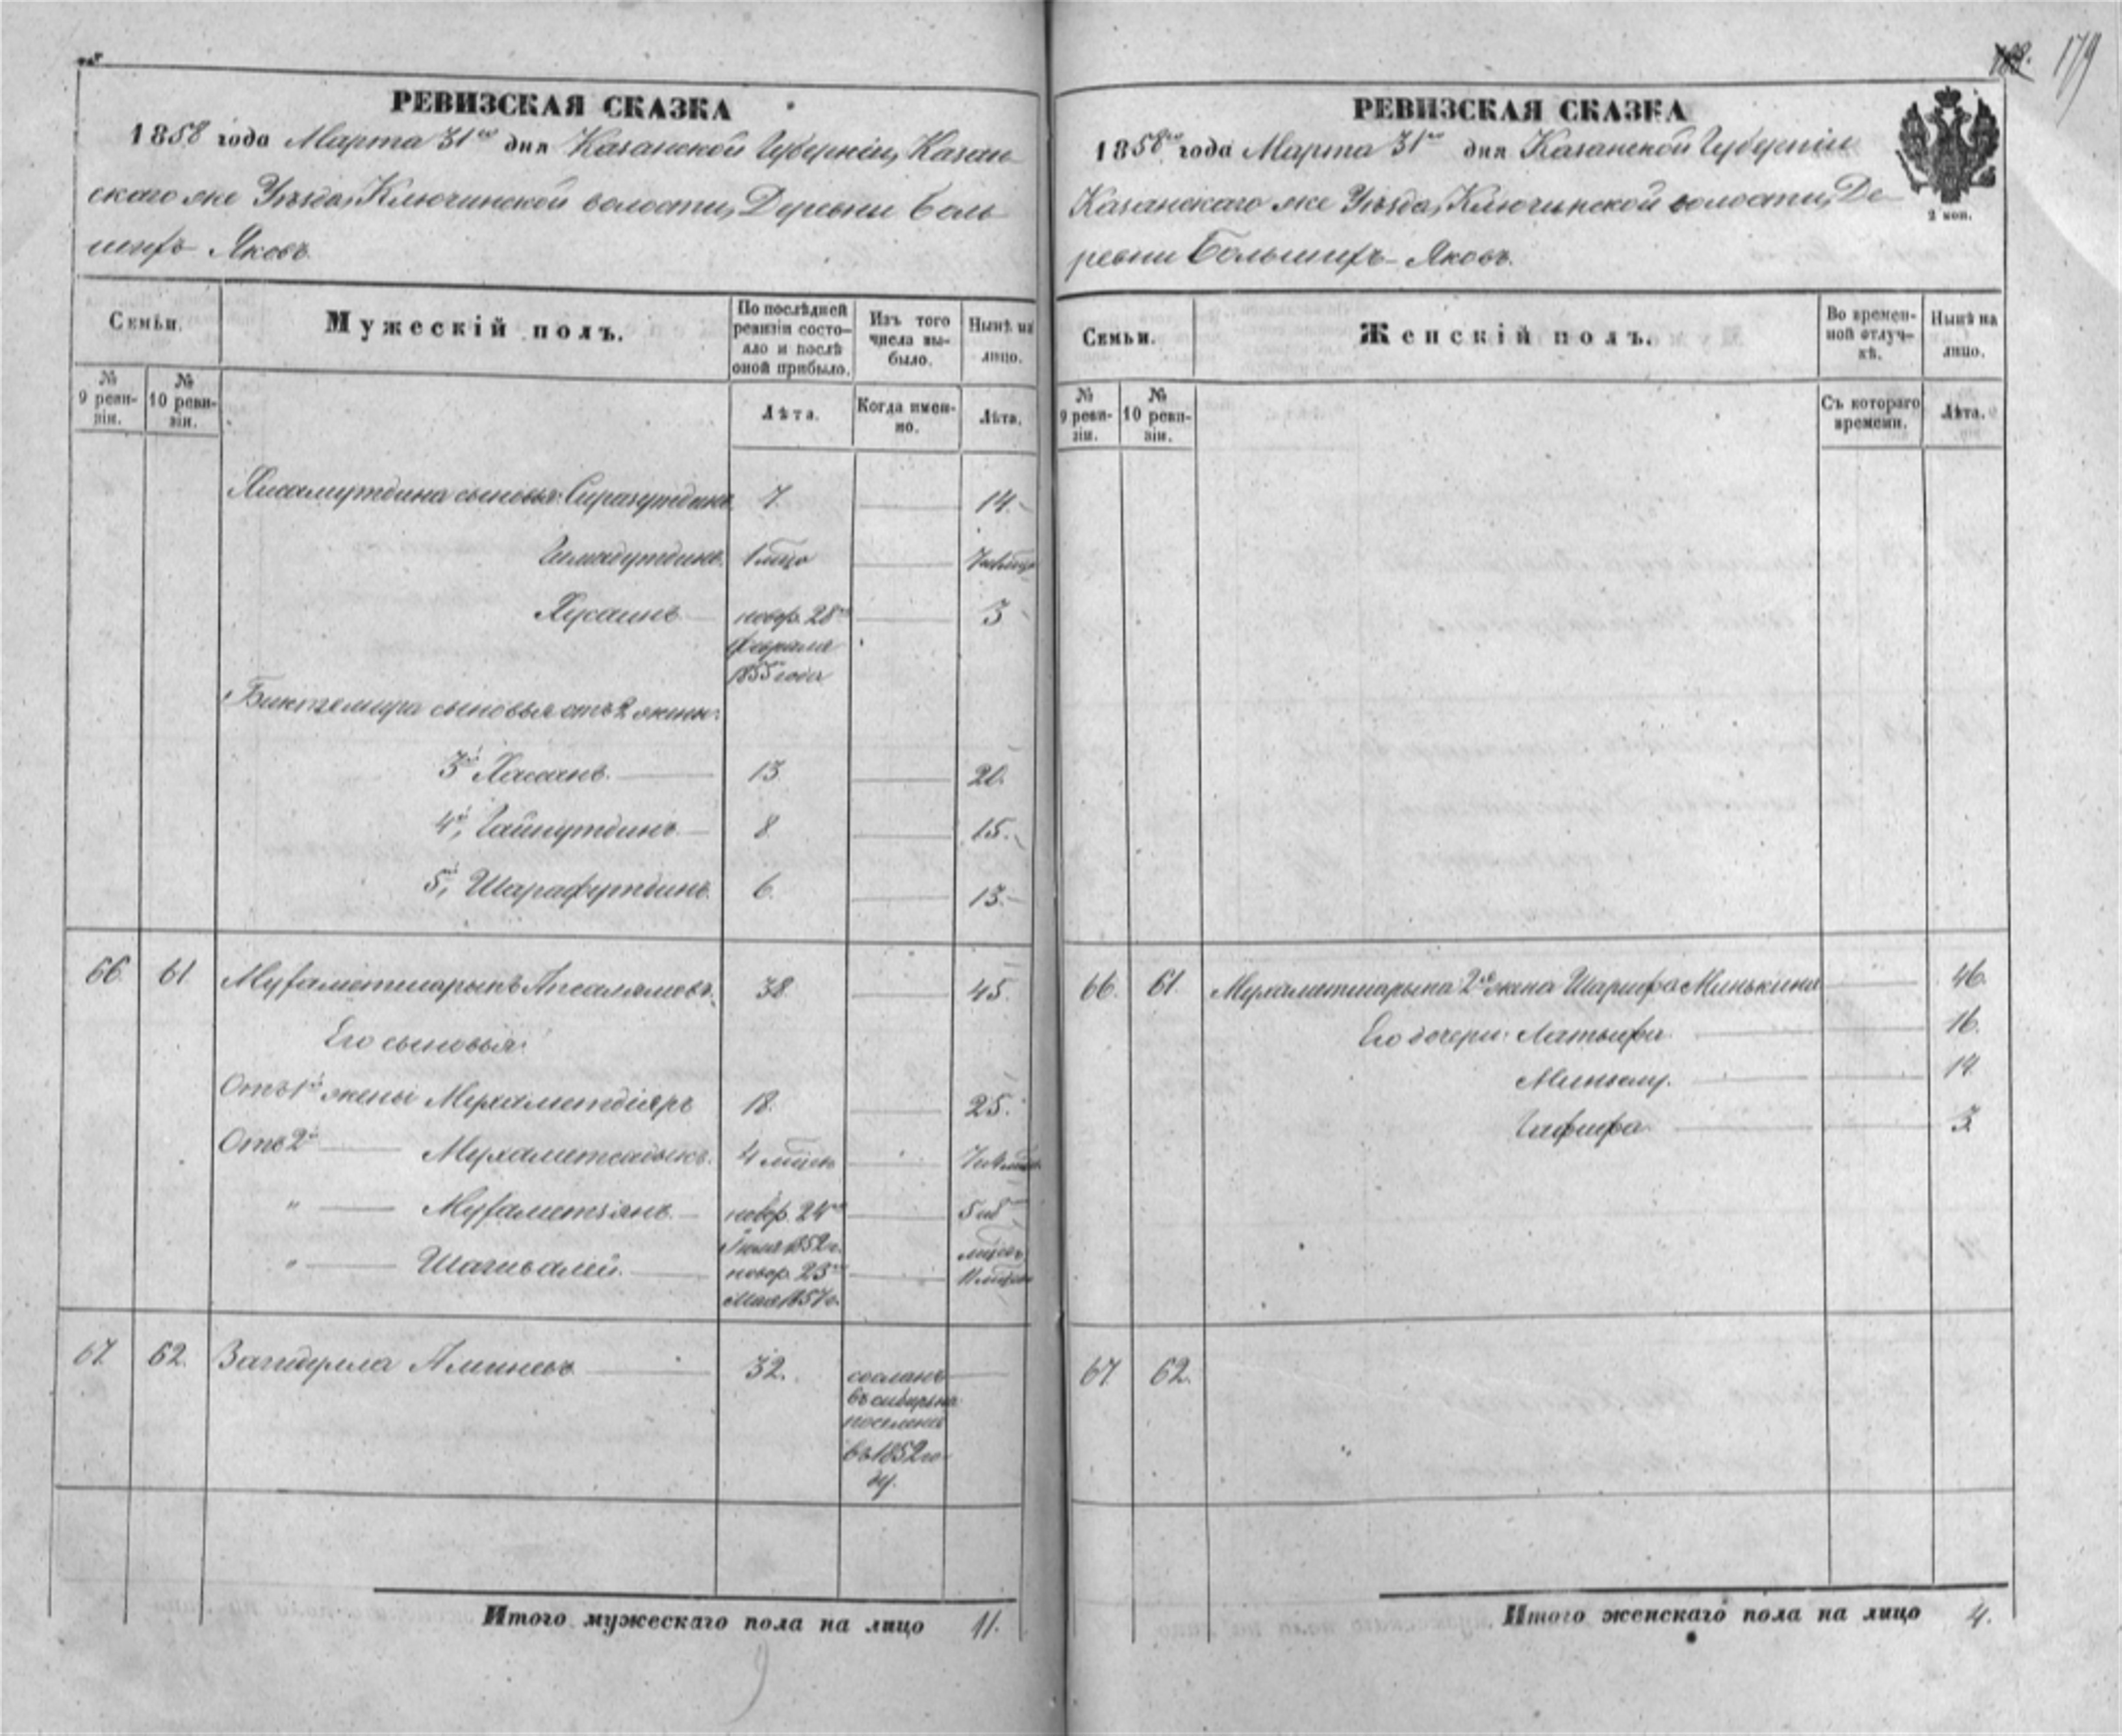 179
РЕВИЗСКАЯ СКАЗКА
1858 года Марта 31го дня Казанской Губерніи, Казан-
скаго же Уѣзда, Ключинской волости, Деревни Боль-
шихъ Яковъ.
Семьи.
Мужескій полъ.
По послѣдней ревизіи состо-
яло и послѣ
оной прибыло.
Изъ того
числа вы-
было.
Нынѣ на
лицо.
№
9 реви-
зіи.
№
10 реви-
зіи.
Лѣта.
Когда имен-
но.
Лѣта.
Хисамутдина сыновья: Сиразутдинъ 7. 14.
1 мцъ
Хусаинъ новор. 28го 3
Февраля
1855 года
Биктемира сыновья отъ 2 жены:
3й Хасанъ. 13. 20.
4й, Гайнутдинъ 8. 15.
5й, Шарафутдинъ. 6. 13.
66. 61 Мухаметшарыпъ Апсалямовъ. 38. 45.
Его сыновья:
Отъ 1й жены Мухаметдіяръ 18. 25.
Отъ 2й Мухаметсадыкъ. 4 мцовъ
" Мухаметзянъ. новор. 24го 5 и 8
Іюля 1852 г. мцовъ
" Шагивалей. новор. 23го
Мая 1857 г.
67. 62. Загидулла Аминевъ 32. сосланъ
въ сибирь на
поселеніе
въ 1852 го-
ду.
Итого мужескаго пола на лицо 11.
РЕВИЗСКАЯ СКАЗКА
1858го года Марта 31го дня Казанской Губерніи
Казанскаго же Уѣзда, Ключинской волости, Де-
ревни Большихъ-Яковъ.
2 коп.
Семьи.
Женскій полъ.
Во времен-
ной отлуч-
кѣ.
Нынѣ на
лицо.
№
9 реви-
зіи.
№
10 реви-
зіи.
Съ котораго
времени.
Лѣта.
66. 61. Мухаметшарыпа 2я жена Шарифа Минькина 46.
Его дочери: Латыфа 16.
3.
67. 62.
Итого женскаго пола на лицо 4.